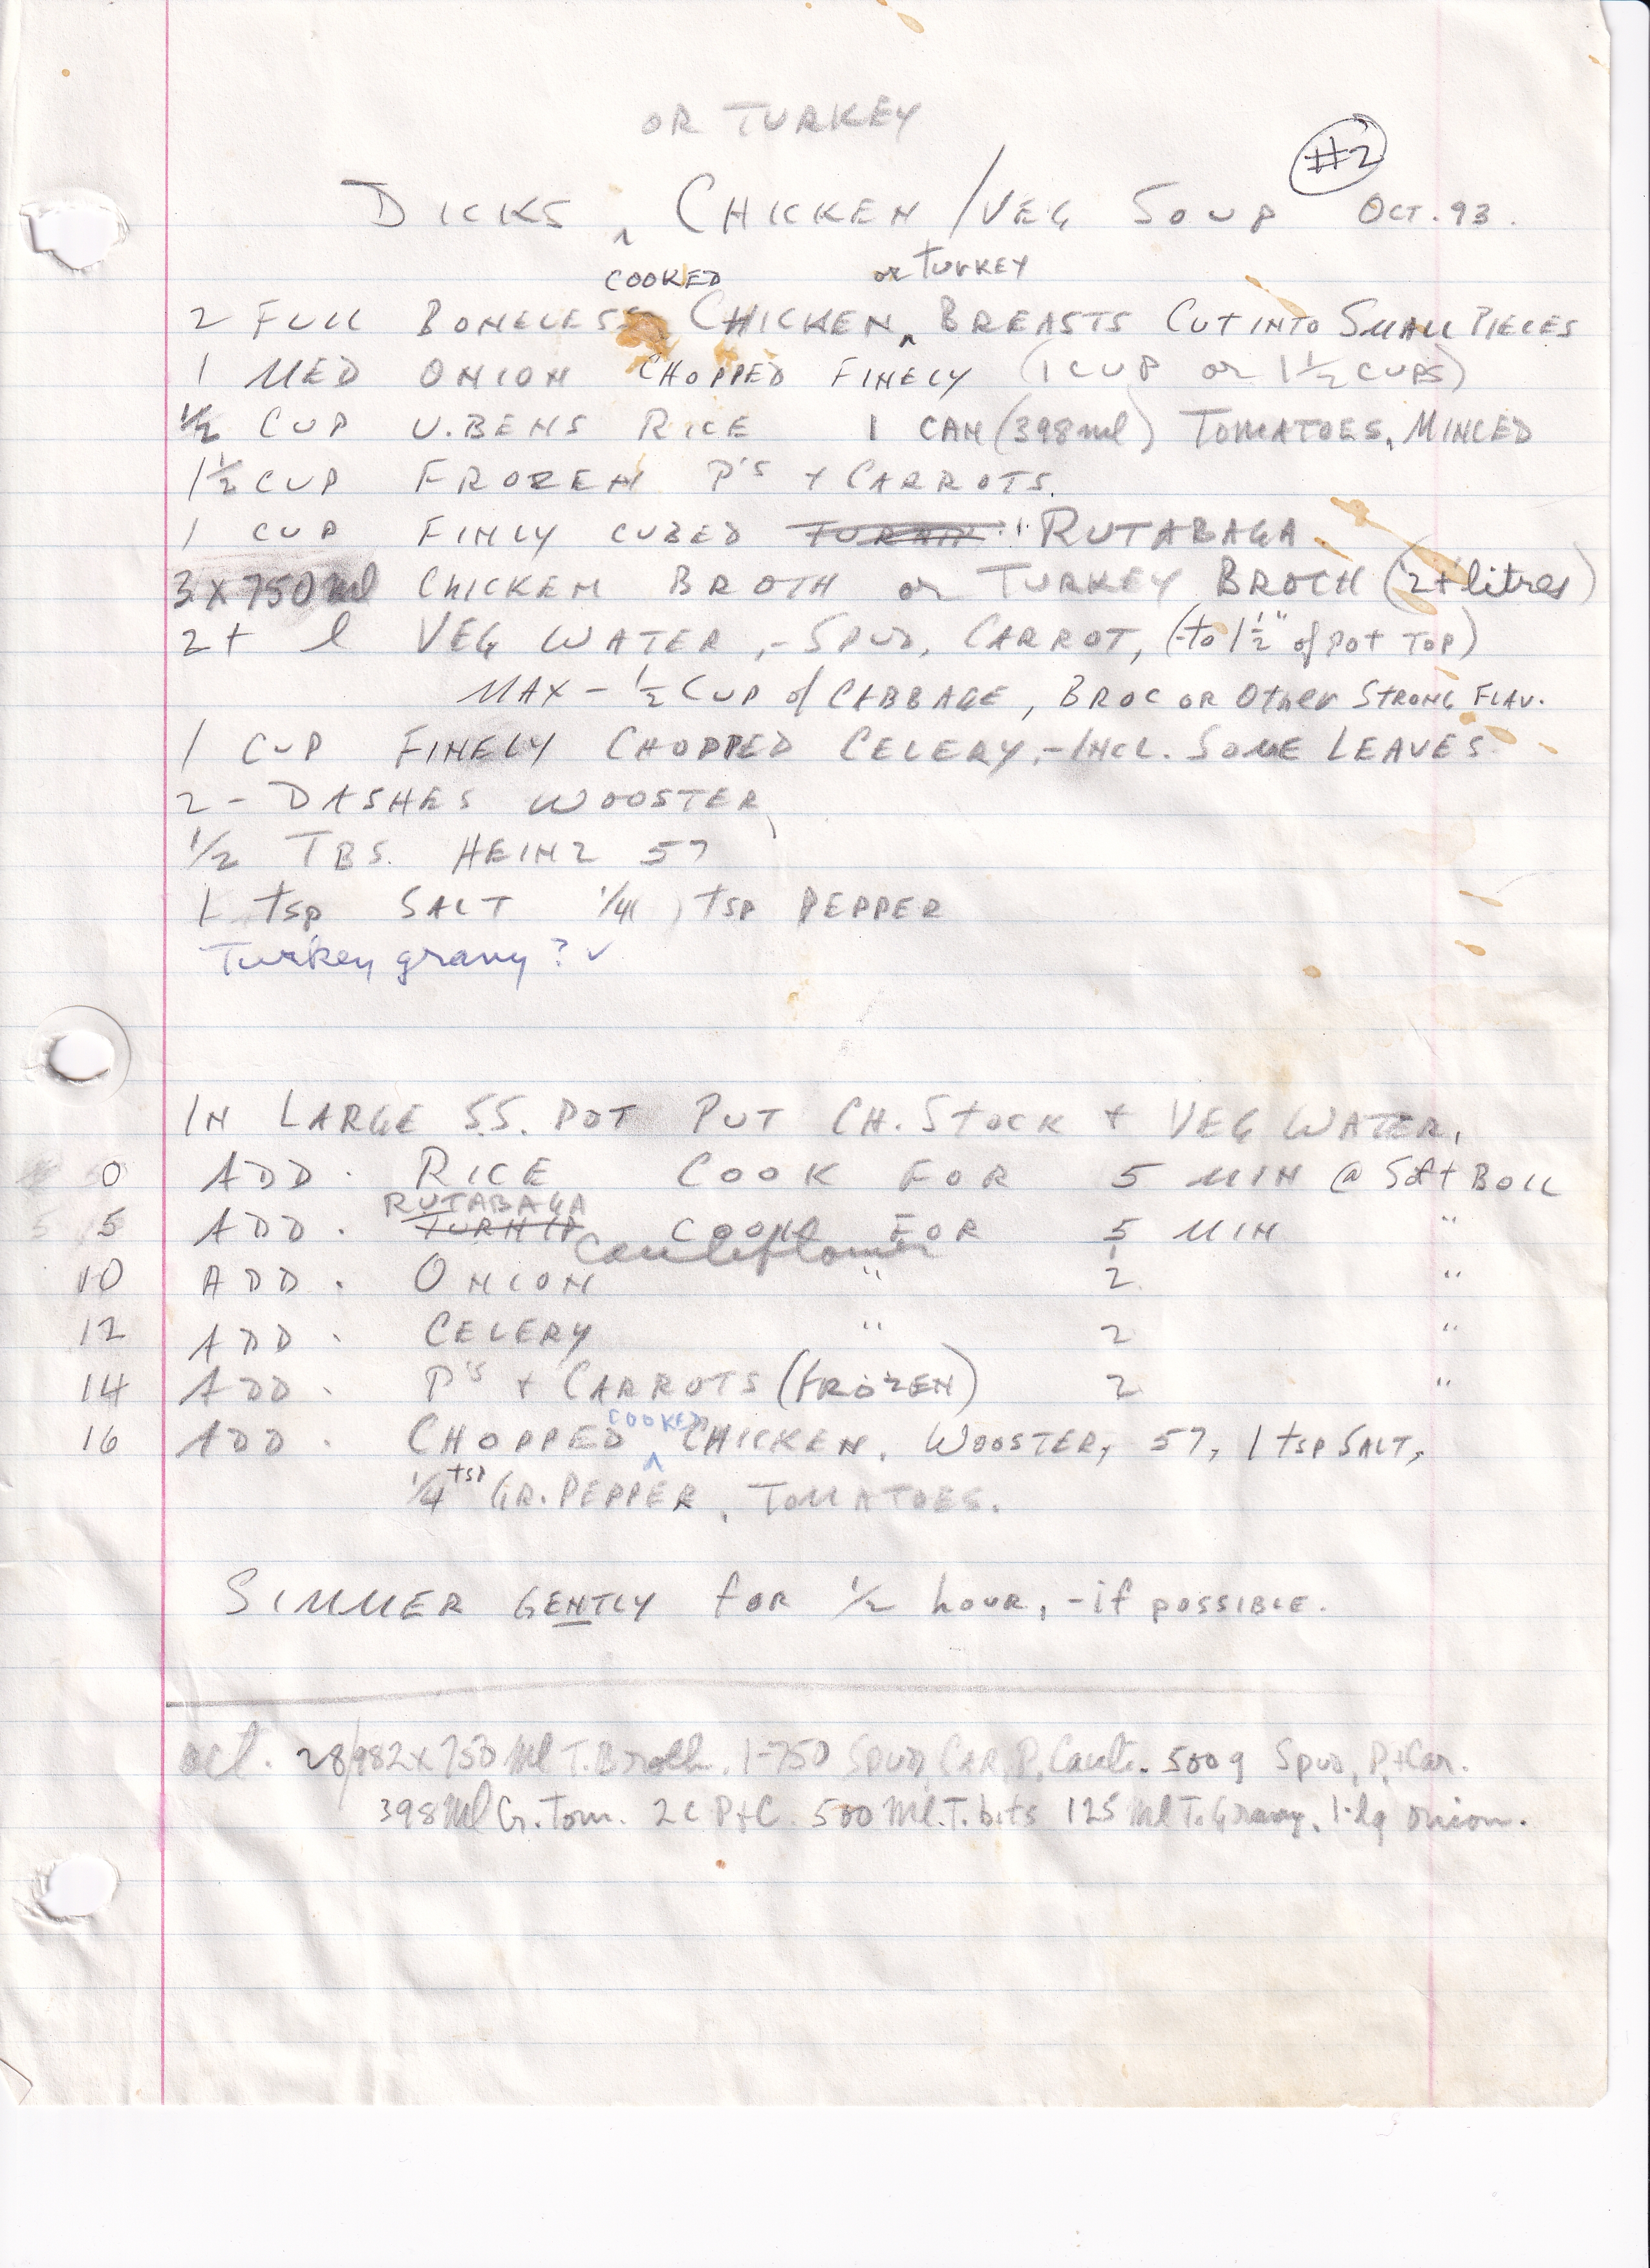 OR TURKEY
#2
DICKS ^ CHICKEN/VEG SOUP OCT. 93.
COOKED or TURKEY
2 FULL BONELESS CHICKEN ^ BREASTS CUT INTO SMALL PIECES
1 MED ONION CHOPPED FINELY (1 CUP or 1½ CUPS)
½ CUP U.BENS RICE 1 CAN (398ml) TOMATOES, MINCED
1½ CUP FROZEN P'S + CARROTS.
1 CUP FINLY CUBED RUTABAGA
3 X 750 ml CHICKEN BROTH or TURKEY BROTH (2+ litres)
2+ l VEG WATER, - SPUD, CARROT, (to 1½" of POT TOP)
MAX - ½ CUP of CABBAGE, BROC OR Other STRONG FLAV.
1 CUP FINELY CHOPPED CELERY, - INCL. SOME LEAVES.
2 - DASHES WOOSTER,
½ TBS. HEINZ 57
1 tsp SALT ¼ tsp PEPPER
Turkey gravy? ✓
IN LARGE S.S. POT PUT CH. STOCK + VEG WATER.
0 ADD. RICE COOK FOR 5 MIN @ Soft BOIL
RUTABAGA
5 ADD. TURNIP COOK FOR 5 MIN "
Cauliflower
10 ADD. ONION " 2 "
12 ADD. CELERY " 2 "
14 ADD. P'S + CARROTS (FROZEN) 2 "
COOKED
16 ADD. CHOPPED ^ CHICKEN, WOOSTER, 57, 1 tsp SALT,
¼ tsp GR. PEPPER, TOMATOES.
SIMMER GENTLY for ½ hour, - if possible.
Oct. 28/98 2 x 750 Ml T. Broth. 1-750 Spud, CAR, P, Caul. 500g Spud, P, + Car.
398 Ml G. Tom. 2 C P+C. 500 Ml. T. bits 125 Ml T. Gravy. 1-lg onion.